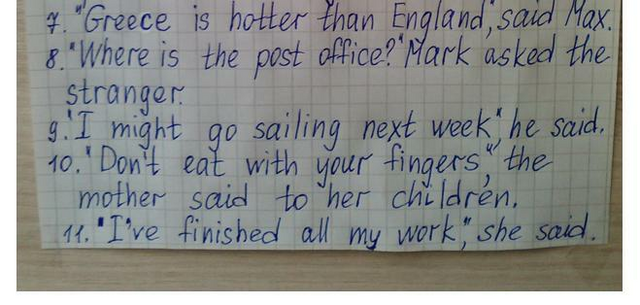 7. "Greece is hotter than England", said Max.
8. "Where is the post office?" Mark asked the
stranger.
9. "I might go sailing next week", he said.
10. "Don't eat with your fingers", the
mother said to her children.
11. "I've finished all my work", she said.